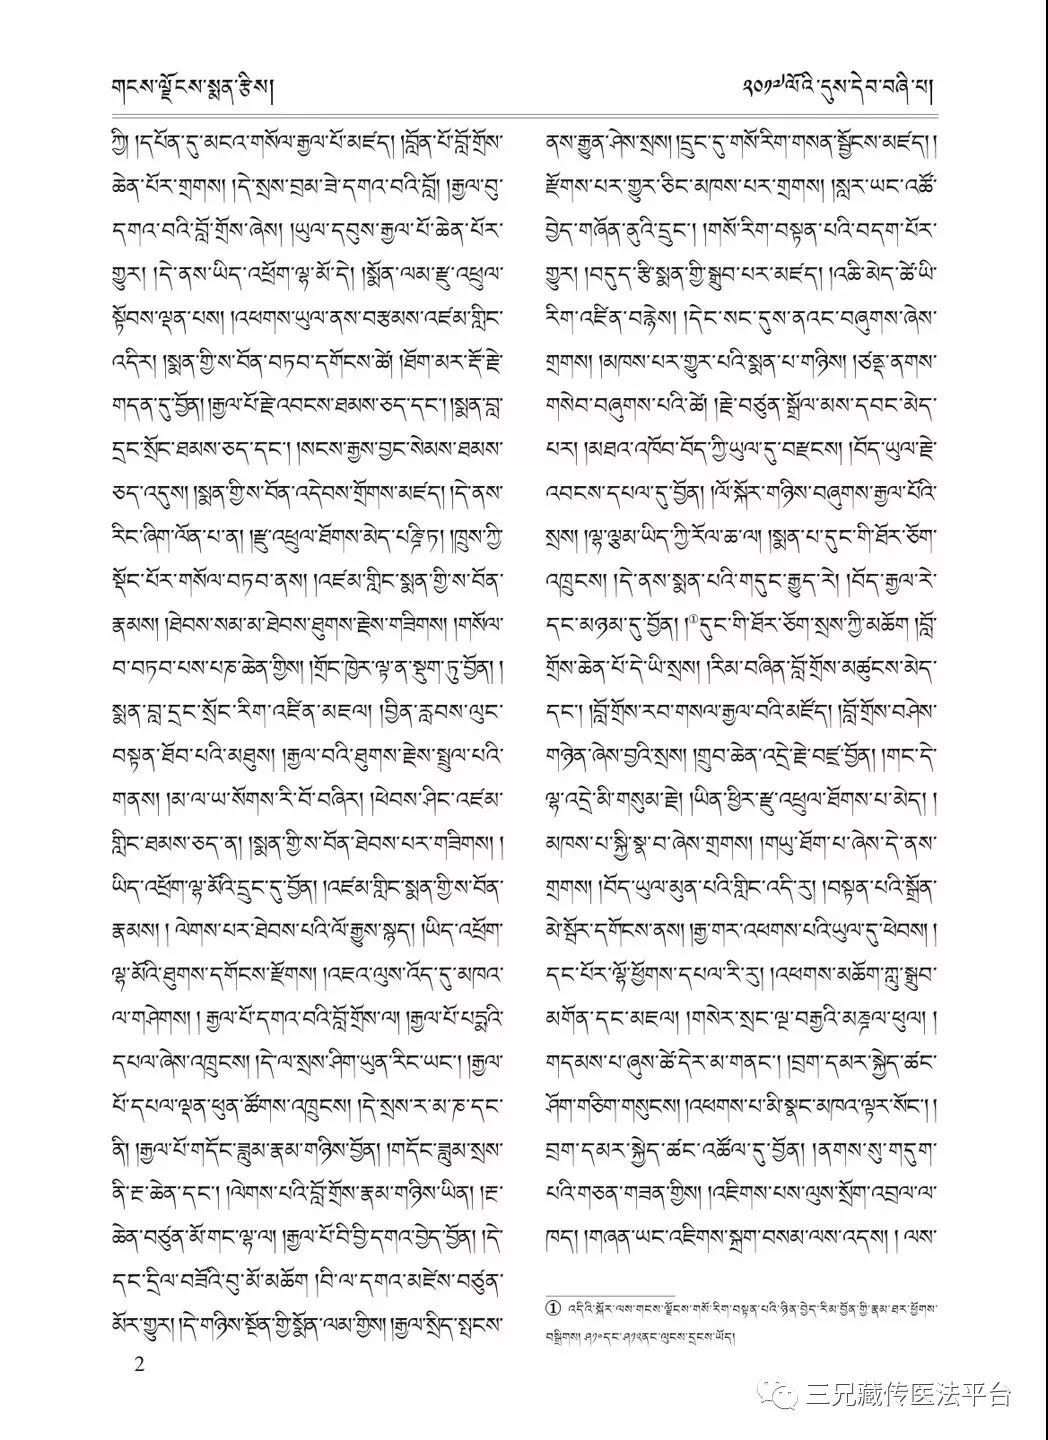 གངས་ལྗོངས་སྨན་རྩིས།
༢༠༡༧ལོའི་དུས་དེབ་བཞི་པ།
ཀྱི། །དཔོན་དུ་མངའ་གསོལ་རྒྱལ་པོ་མཛད། །བློན་པོ་བློ་གྲོས་
ཆེན་པོར་གྲགས། །དེ་སྲས་བྲམ་ཟེ་དགའ་བའི་བློ། །རྒྱལ་བུ་
དགའ་བའི་བློ་གྲོས་ཞེས། །ཡུལ་དབུས་རྒྱལ་པོ་ཆེན་པོར་
གྱུར། །དེ་ནས་ཡིད་འཕྲོག་ལྷ་མོ་དེ། །སྨོན་ལམ་རྫུ་འཕྲུལ་
སྟོབས་ལྡན་པས། །འཕགས་ཡུལ་ནས་བརྩམས་འཛམ་གླིང་
འདིར། །སྨན་གྱི་ས་བོན་བཏབ་དགོངས་ཚེ། །ཐོག་མར་རྡོ་རྗེ་
གདན་དུ་བྱོན། །རྒྱལ་པོ་རྗེ་འབངས་ཐམས་ཅད་དང་། །སྨན་བླ་
དྲང་སྲོང་ཐམས་ཅད་དང་། །སངས་རྒྱས་བྱང་སེམས་ཐམས་
ཅད་འདུས། །སྨན་གྱི་ས་བོན་འདེབས་གྲོགས་མཛད། །དེ་ནས་
རིང་ཞིག་ལོན་པ་ན། །རྫུ་འཕྲུལ་ཐོགས་མེད་པཎྜི་ཏ། །ཁྲུས་ཀྱི་
སྡོང་པོར་གསོལ་བཏབ་ནས། །འཛམ་གླིང་སྨན་གྱི་ས་བོན་
རྣམས། །ཐེབས་སམ་མ་ཐེབས་ཐུགས་རྗེས་གཟིགས། །གསོལ་
བ་བཏབ་པས་པཎ་ཆེན་གྱིས། །གྲོང་ཁྱེར་ལྟ་ན་སྡུག་ཏུ་བྱོན། །
སྨན་བླ་དྲང་སྲོང་རིག་འཛིན་མཇལ། །བྱིན་རླབས་ལུང་
བསྟན་ཐོབ་པའི་མཐུས། །རྒྱལ་བའི་ཐུགས་རྗེས་སྤྲུལ་པའི་
གནས། །མ་ལ་ཡ་སོགས་རི་བོ་བཞིར། །ཕེབས་ཤིང་འཛམ་
གླིང་ཐམས་ཅད་ན། །སྨན་གྱི་ས་བོན་ཐེབས་པར་གཟིགས། །
ཡིད་འཕྲོག་ལྷ་མོའི་དྲུང་དུ་བྱོན། །འཛམ་གླིང་སྨན་གྱི་ས་བོན་
རྣམས། །ལེགས་པར་ཐེབས་པའི་ལོ་རྒྱུས་སྙད། །ཡིད་འཕྲོག་
ལྷ་མོའི་ཐུགས་དགོངས་རྫོགས། །འཇའ་ལུས་འོད་དུ་མཁའ་
ལ་གཤེགས། །རྒྱལ་པོ་དགའ་བའི་བློ་གྲོས་ལ། །རྒྱལ་པོ་པདྨའི་
དཔལ་ཞེས་འཁྲུངས། །དེ་ལ་སྲས་ཤིག་ཡུན་རིང་ཡང་། །རྒྱལ་
པོ་དཔལ་ལྡན་ཕུན་ཚོགས་འཁྲུངས། །དེ་སྲས་ར་མ་ཎ་དང་
ནི། །རྒྱལ་པོ་གདོང་ཟླུམ་རྣམ་གཉིས་བྱོན། །གདོང་ཟླུམ་སྲས་
ནི་ངྲ་ཆེན་དང་། །ལེགས་པའི་བློ་གྲོས་རྣམ་གཉིས་ཡིན། །ངྲ་
ཆེན་བཙུན་མོ་གང་ལྷ་ལ། །རྒྱལ་པོ་བི་བྱི་དགའ་བྱེད་བྱོན། །དེ་
དང་དྲིལ་བཟོའི་བུ་མོ་མཆོག །བི་ལ་དགའ་མཛེས་བཙུན་
མོར་གྱུར། །དེ་གཉིས་སྔོན་གྱི་སྨོན་ལམ་གྱིས། །རྒྱལ་སྲིད་སྤངས་
ནས་རྒྱུན་ཤེས་སྲས། །དྲུང་དུ་གསོ་རིག་གསན་སྦྱོངས་མཛད། །
རྫོགས་པར་གྱུར་ཅིང་མཁས་པར་གྲགས། །སླར་ཡང་འཚོ་
བྱེད་གཞོན་ནུའི་དྲུང་། །གསོ་རིག་བསྟན་པའི་བདག་པོར་
གྱུར། །བདུད་རྩི་སྨན་གྱི་སྒྲུབ་པར་མཛད། །འཆི་མེད་ཚེ་ཡི་
རིག་འཛིན་བརྙེས། །དེང་སང་དུས་ནའང་བཞུགས་ཞེས་
གྲགས། །མཁས་པར་གྱུར་པའི་སྨན་པ་གཉིས། །ཙནྡན་ནགས་
གསེབ་བཞུགས་པའི་ཚེ། །རྗེ་བཙུན་སྒྲོལ་མས་དབང་མེད་
པར། །མཐའ་འཁོབ་བོད་ཀྱི་ཡུལ་དུ་བརྫངས། །བོད་ཡུལ་རྗེ་
འབངས་དཔལ་དུ་བྱོན། །ལོ་སྐོར་གཉིས་བཞུགས་རྒྱལ་པོའི་
སྲས། །ལྷ་ལྕམ་ཡིད་ཀྱི་རོལ་ཆ་ལ། །སྨན་པ་དུང་གི་ཐོར་ཅོག་
འཁྲུངས། །དེ་ནས་སྨན་པའི་གདུང་རྒྱུད་རེ། །བོད་རྒྱལ་རེ་
དང་མཉམ་དུ་བྱོན། །①དུང་གི་ཐོར་ཅོག་སྲས་ཀྱི་མཆོག །བློ་
གྲོས་ཆེན་པོ་དེ་ཡི་སྲས། །རིམ་བཞིན་བློ་གྲོས་མཚུངས་མེད་
དང་། །བློ་གྲོས་རབ་གསལ་རྒྱལ་བའི་མཛོད། །བློ་གྲོས་བཤེས་
གཉེན་ཞེས་བྱའི་སྲས། །གྲུབ་ཆེན་འདྲེ་རྗེ་བཛྲ་བྱོན། །གང་དེ་
ལྷ་འདྲེ་མི་གསུམ་རྗེ། །ཡིན་ཕྱིར་རྫུ་འཕྲུལ་ཐོགས་པ་མེད། །
མཁས་པ་སྐྱི་སྣ་བ་ཞེས་གྲགས། །གཡུ་ཐོག་པ་ཞེས་དེ་ནས་
གྲགས། །བོད་ཡུལ་མུན་པའི་གླིང་འདི་རུ། །བསྟན་པའི་སྒྲོན་
མེ་སྤོར་དགོངས་ནས། །རྒྱ་གར་འཕགས་པའི་ཡུལ་དུ་ཕེབས། །
དང་པོར་ལྷོ་ཕྱོགས་དཔལ་རི་རུ། །འཕགས་མཆོག་ཀླུ་སྒྲུབ་
མགོན་དང་མཇལ། །གསེར་སྲང་ལྔ་བརྒྱའི་མཎྜལ་ཕུལ། །
གདམས་པ་ཞུས་ཚེ་དེར་མ་གནང་། །བྲག་དམར་སྐྱེད་ཚང་
ཤོག་གཅིག་གསུངས། །འཕགས་པ་མི་སྣང་མཁའ་ལྟར་སོང་། །
བྲག་དམར་སྐྱེད་ཚང་འཚོལ་དུ་བྱོན། །ནགས་སུ་གདུག་
པའི་གཅན་གཟན་གྱིས། །འཇིགས་པས་ལུས་སྲོག་འབྲལ་ལ་
ཁད། །གཞན་ཡང་འཇིགས་སྐྲག་བསམ་ལས་འདས། །ལས་
① འདིའི་སྐོར་ལས་གངས་ལྗོངས་གསོ་རིག་བསྟན་པའི་ཉིན་བྱེད་རིམ་བྱོན་གྱི་རྣམ་ཐར་ཕྱོགས་
བསྒྲིགས། ཤ༡༠དང་ཤ༡༢ནང་ལུངས་དྲངས་ཡོད།
2
三兄藏传医法平台